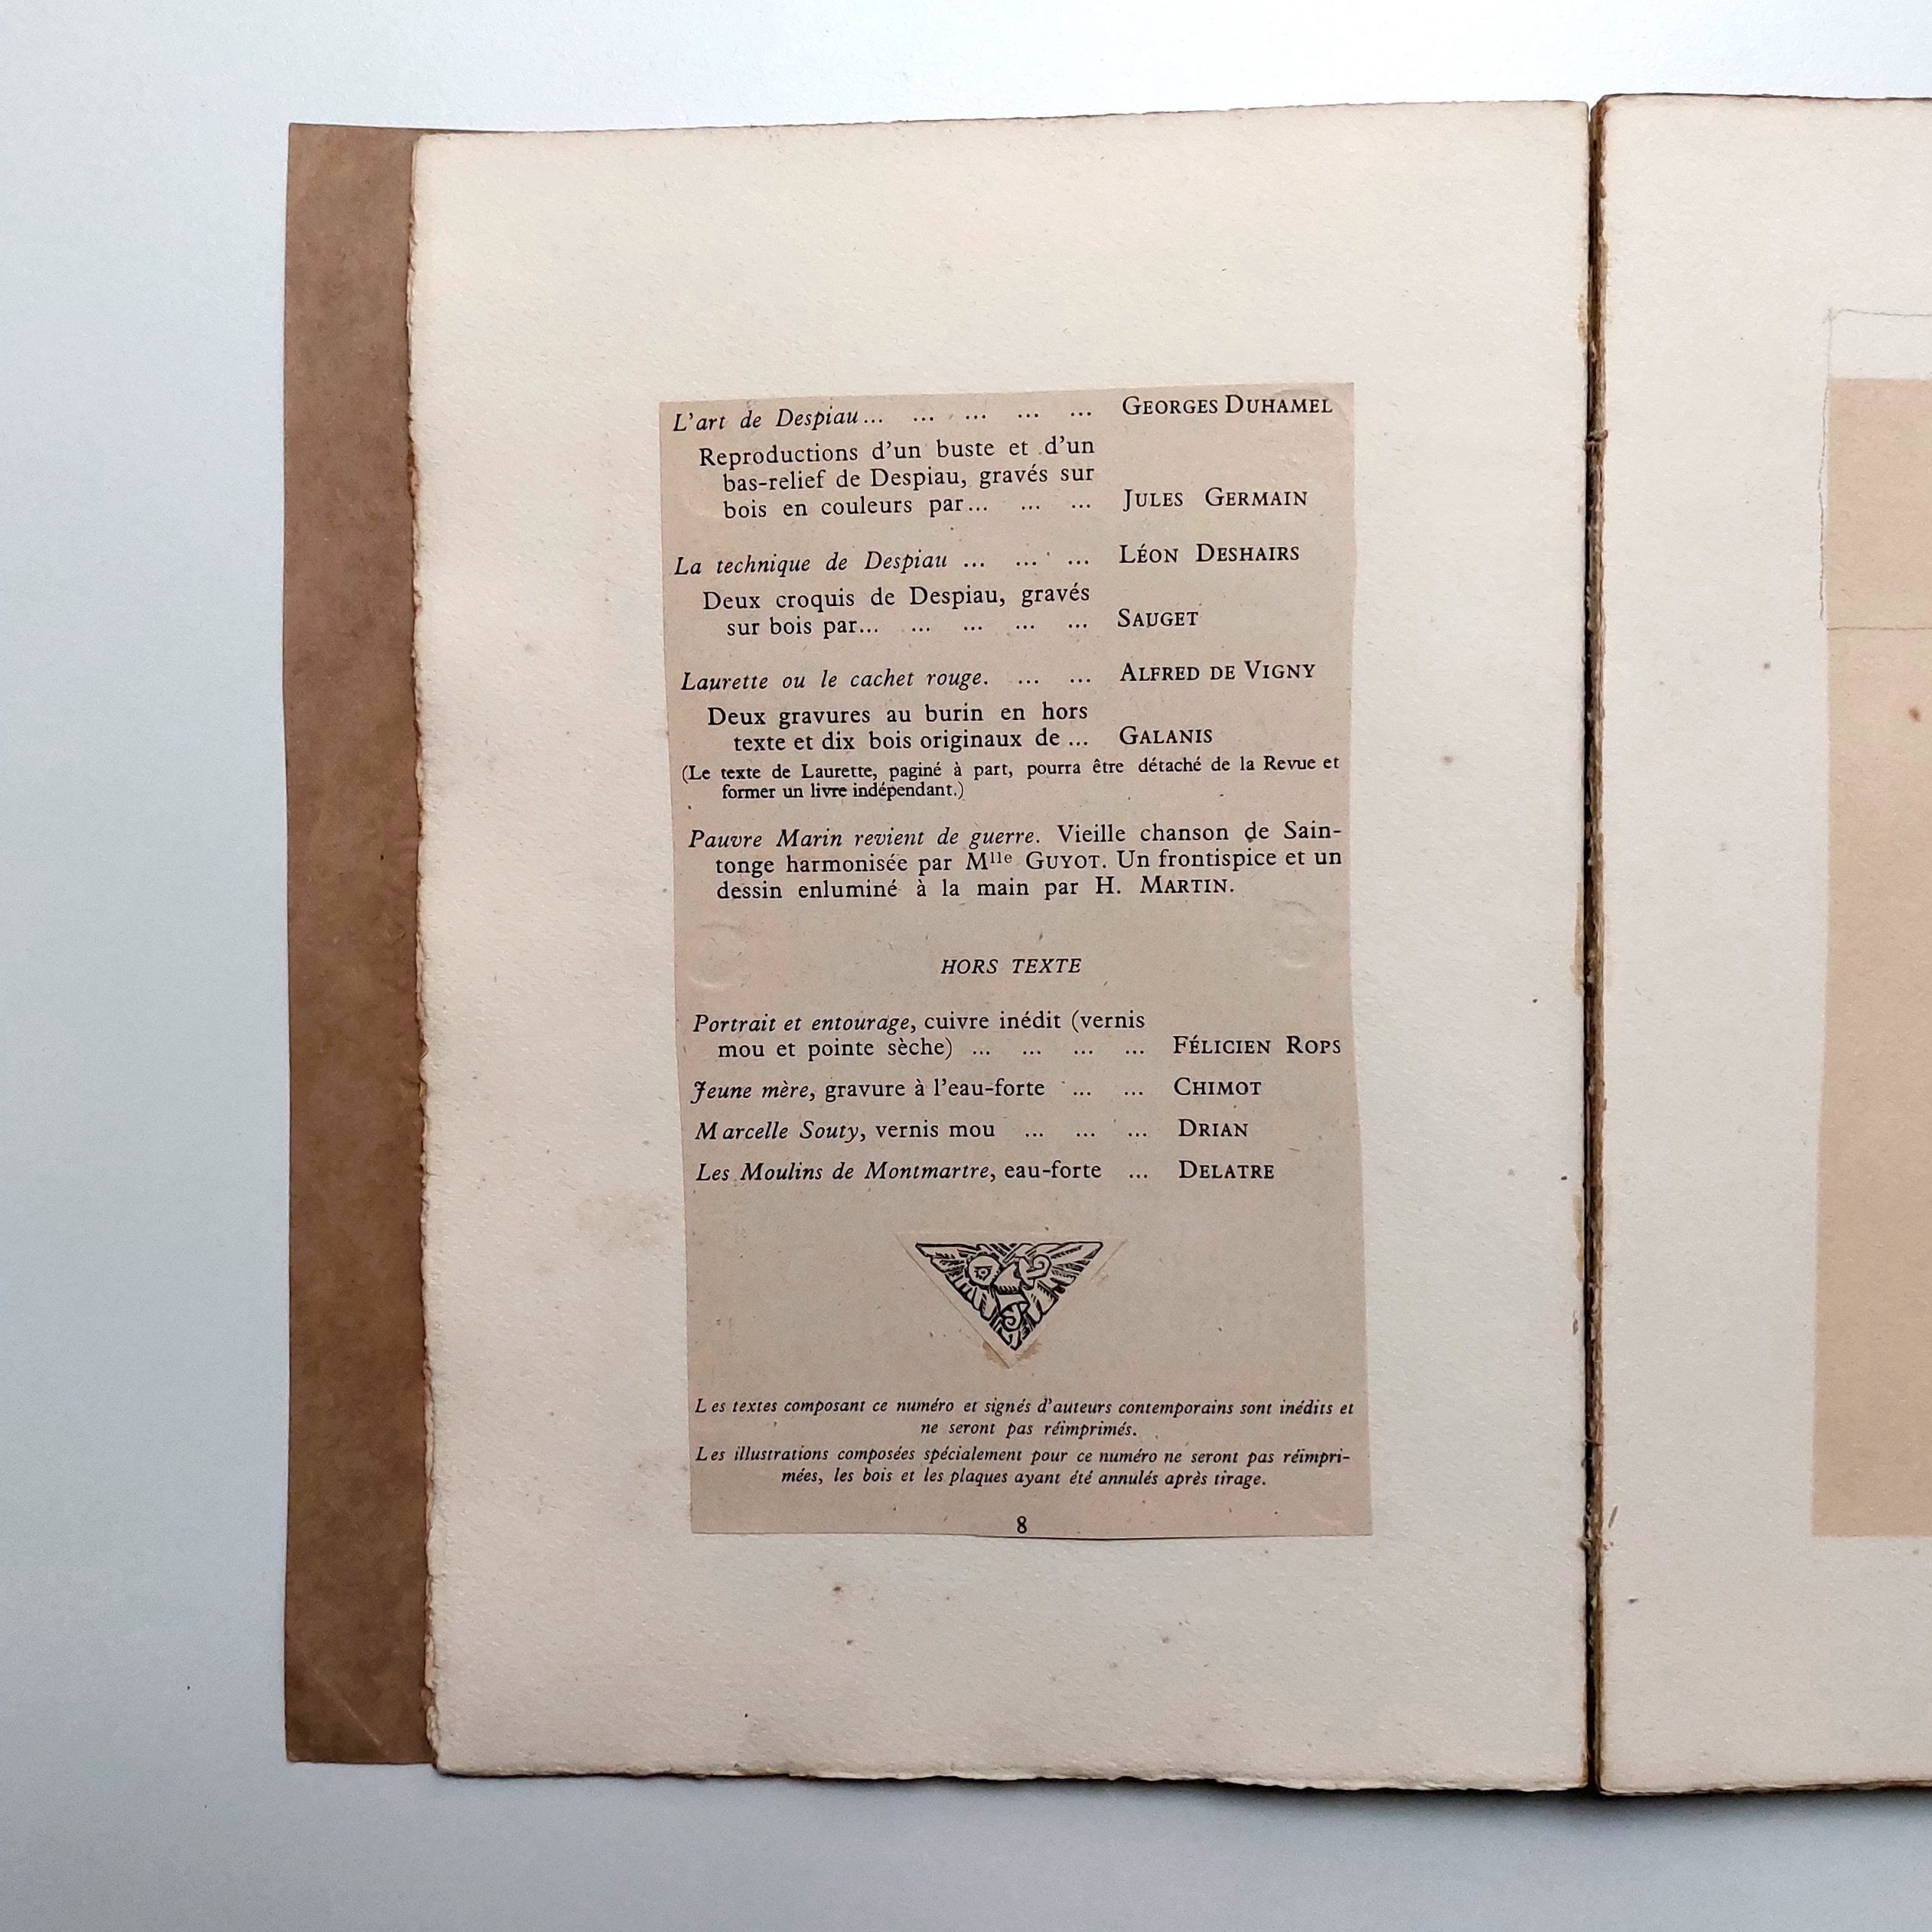 L'art de Despiau... ... ... ... ... GEORGES DUHAMEL
Reproductions d'un buste et d'un
bas-relief de Despiau, gravés sur
bois en couleurs par... ... ... JULES GERMAIN
La technique de Despiau ... ... ... LÉON DESHAIRS
Deux croquis de Despiau, gravés
sur bois par... ... ... ... ... SAUGET
Laurette ou le cachet rouge. ... ... ALFRED DE VIGNY
Deux gravures au burin en hors
texte et dix bois originaux de ... GALANIS
(Le texte de Laurette, paginé à part, pourra être détaché de la Revue et
former un livre indépendant.)
Pauvre Marin revient de guerre. Vieille chanson de Sain-
tonge harmonisée par Mlle GUYOT. Un frontispice et un
dessin enluminé à la main par H. MARTIN.
HORS TEXTE
Portrait et entourage, cuivre inédit (vernis
mou et pointe sèche) ... ... ... ... FÉLICIEN ROPS
Jeune mère, gravure à l'eau-forte ... ... CHIMOT
Marcelle Souty, vernis mou ... ... ... DRIAN
Les Moulins de Montmartre, eau-forte ... DELATRE
Les textes composant ce numéro et signés d'auteurs contemporains sont inédits et
ne seront pas réimprimés.
Les illustrations composées spécialement pour ce numéro ne seront pas réimpri-
mées, les bois et les plaques ayant été annulés après tirage.
8